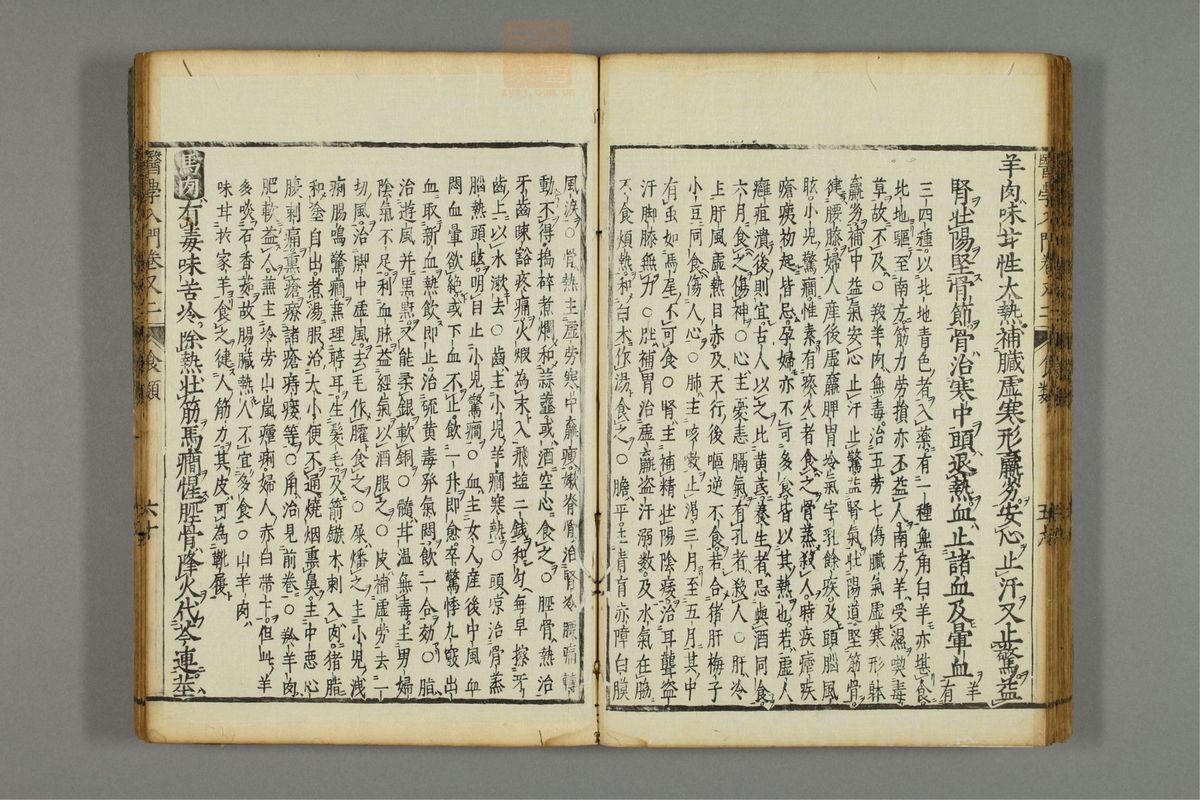 羊肉味甘性大熱補臟虛寒形羸劣安心止汗又止驚益
腎壯陽堅骨節骨治寒中頭退熱血止諸血及暈血 羊有
三四種以北地青色者入藥有一種無角白羊亦堪食
北地驅至南方筋力勞損亦不益人南方羊受濕喫毒
草故不及○羖羊肉無毒治五勞七傷臟氣虛寒形體
羸劣補中益氣安心止汗止驚益腎氣壯陽道堅筋骨
健腰膝婦人産後虛羸脾胃冷氣字乳餘疾及頭腦風
眩小兒驚癇惟素有痰火者食之骨蒸殺人時疾瘧疾
瘡痍初起皆忌孕婦亦不可多食皆以其熱也若虛人
癰疽潰後則宜古人以之比黃芪養生者忌與酒同食
六月食之傷神○心主憂恚膈氣有孔者殺人○肝冷
上肝風虛熱目赤及天行後嘔逆不食若合猪肝梅子
小豆同食傷人心○肺主咳嗽止渴三月至五月其中
有虫如馬尾不可食○腎主補精壯陽陰痿治耳聾盜
汗脚膝無力○肚補胃治虛羸盜汗溺數及水氣在脇
不食煩熱和白木作湯食之○膽平主青盲赤障白膜
風淚○骨熱主虛勞寒中羸瘦
動不得搗碎煮爛和蒜薤或酒空心食之○脛骨熱治
牙齒疎豁疼痛火煆為末入飛塩二錢和勻每早擦牙
齒上以水漱去○齒主小兒羊癇寒熱○頭凉治骨蒸
腦熱頭眩明目止小兒驚癇○血主女人産後中風血
悶血暈欲絶或下血不止飲一升即愈卒驚悸九竅出
血取新血熱飲即止治硫黃毒發氣悶飲一合効○脂
治遊風并黑䵟又能柔銀軟銅○髓甘温無毒主男婦
陰氣不足利血脉益經氣以酒服之○皮補虛勞去一
切風治脚中虛風去毛作臛食之○屎燔之主小兒洩
痢腸鳴驚癇兼理聤耳生髮毛及箭鏃木刺入肉猪脂
和塗自出煮湯服治大小便不通燒烟熏鼻主中惡心
腹刺痛熏瘡療諸瘡痔瘻等○角治見前卷○羚羊肉
肥軟益人兼主冷勞山嵐瘧痢婦人赤白帶下但此羊
多啖石香葇故腸臟熱人不宜多食○山羊肉
味甘於家羊食之健人筋力其皮可為靴屐
馬肉有毒味苦冷除熱壯筋馬癇惺脛骨降火代芩連莖
醫學入門卷又二
食類
六十